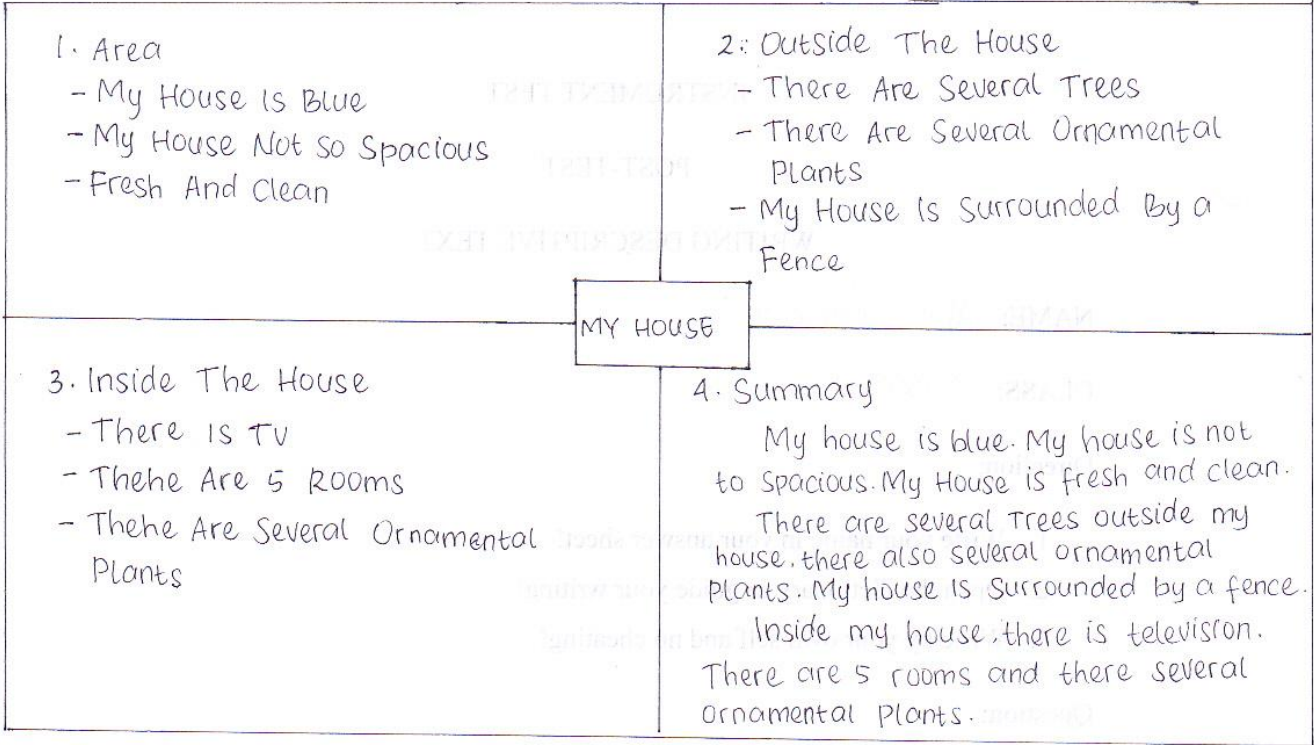 1. Area
- My House Is Blue
- My House Not So Spacious
- Fresh And Clean
2. Outside The House
- There Are Several Trees
- There Are Several Ornamental
Plants
- My House Is Surrounded By a
Fence
MY HOUSE
3. Inside The House
- There Is TV
- Thehe Are 5 Rooms
- Thehe Are Several Ornamental
Plants
4. Summary
My house is blue. My house is not
to spacious. My House is fresh and clean.
There are several Trees outside my
house. there also several ornamental
plants. My house Is Surrounded by a fence.
Inside my house, there is television.
There are 5 rooms and there several
ornamental Plants.
INSTRUMENT TEST
POST-TEST
WRITING DESCRIPTIVE TEXT
NAME:
CLASS: